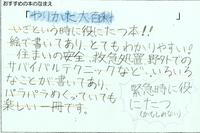 おすすめの本のなまえ
「やりかた大百科」
いざという時に役にたつ本!!
絵で書いてあり、とてもわかりやすい!
住まいの安全、救急処置、野外での
サバイバルテクニックなど、いろいろ
なことが書いてあり、
パラパラめくっていても
楽しい一冊です。
緊急時に役
にたつ
(かもしれない)